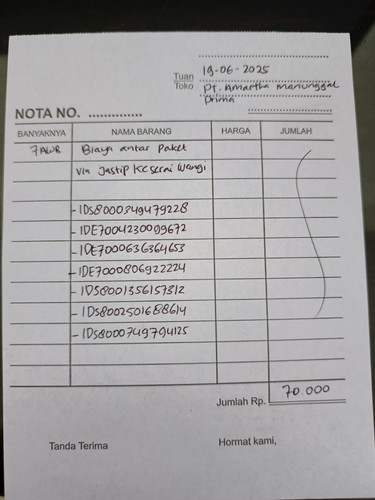 19-06-2025
Tuan
Toko
PT. Amartha Manunggal
Prima
NOTA NO. ..............
BANYAKNYA NAMA BARANG HARGA JUMLAH
7 AWB Biaya antar Paket
Via Jastip Kc Serai Wangi
- IDS8000349479228
- IDE7004230099672
- IDE7000636364653
- IDE7000806922224
- IDS8001356157312
- IDS8002501688614
- IDS8000749794125
Jumlah Rp. 70.000
Tanda Terima Hormat kami,